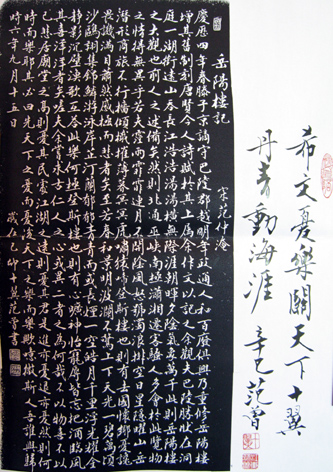 希文憂樂關天下十翼
丹青動海涯 辛巳 范曾
岳陽樓記
宋 范仲淹
慶歷四年春滕子京謫守巴陵郡越明年政通人和百廢俱興乃重修岳陽樓
增其舊制刻唐賢今人詩賦於其上屬余作文以記之余觀夫巴陵勝狀在洞
庭一湖銜遠山吞長江浩浩湯湯橫無際涯朝暉夕陰氣象萬千此則岳陽樓
之大觀也前人之述備矣然則北通巫峽南極瀟湘遷客騷人多會於此覽物
之情得無異乎若夫霪雨霏霏連月不開陰風怒號濁浪排空日星隱曜山岳
潛形商旅不行檣傾楫摧薄暮冥冥虎嘯猿啼登斯樓也則有去國懷鄉憂讒
畏譏滿目蕭然感極而悲者矣至若春和景明波瀾不驚上下天光一碧萬頃
沙鷗翔集錦鱗游泳岸芷汀蘭郁郁青青而或長煙一空皓月千里浮光耀金
靜影沉璧漁歌互答此樂何極登斯樓也則有心曠神怡寵辱皆忘把酒臨風
其喜洋洋者矣嗟夫余嘗求古仁人之心或異二者之為何哉不以物喜不以
己悲居廟堂之高則憂其民處江湖之遠則憂其君是進亦憂退亦憂然則何
時而樂耶其必曰先天下之憂而憂後天下之樂而樂歟噫微斯人吾誰與歸
時六年九月十五日 歲在己卯 范曾書